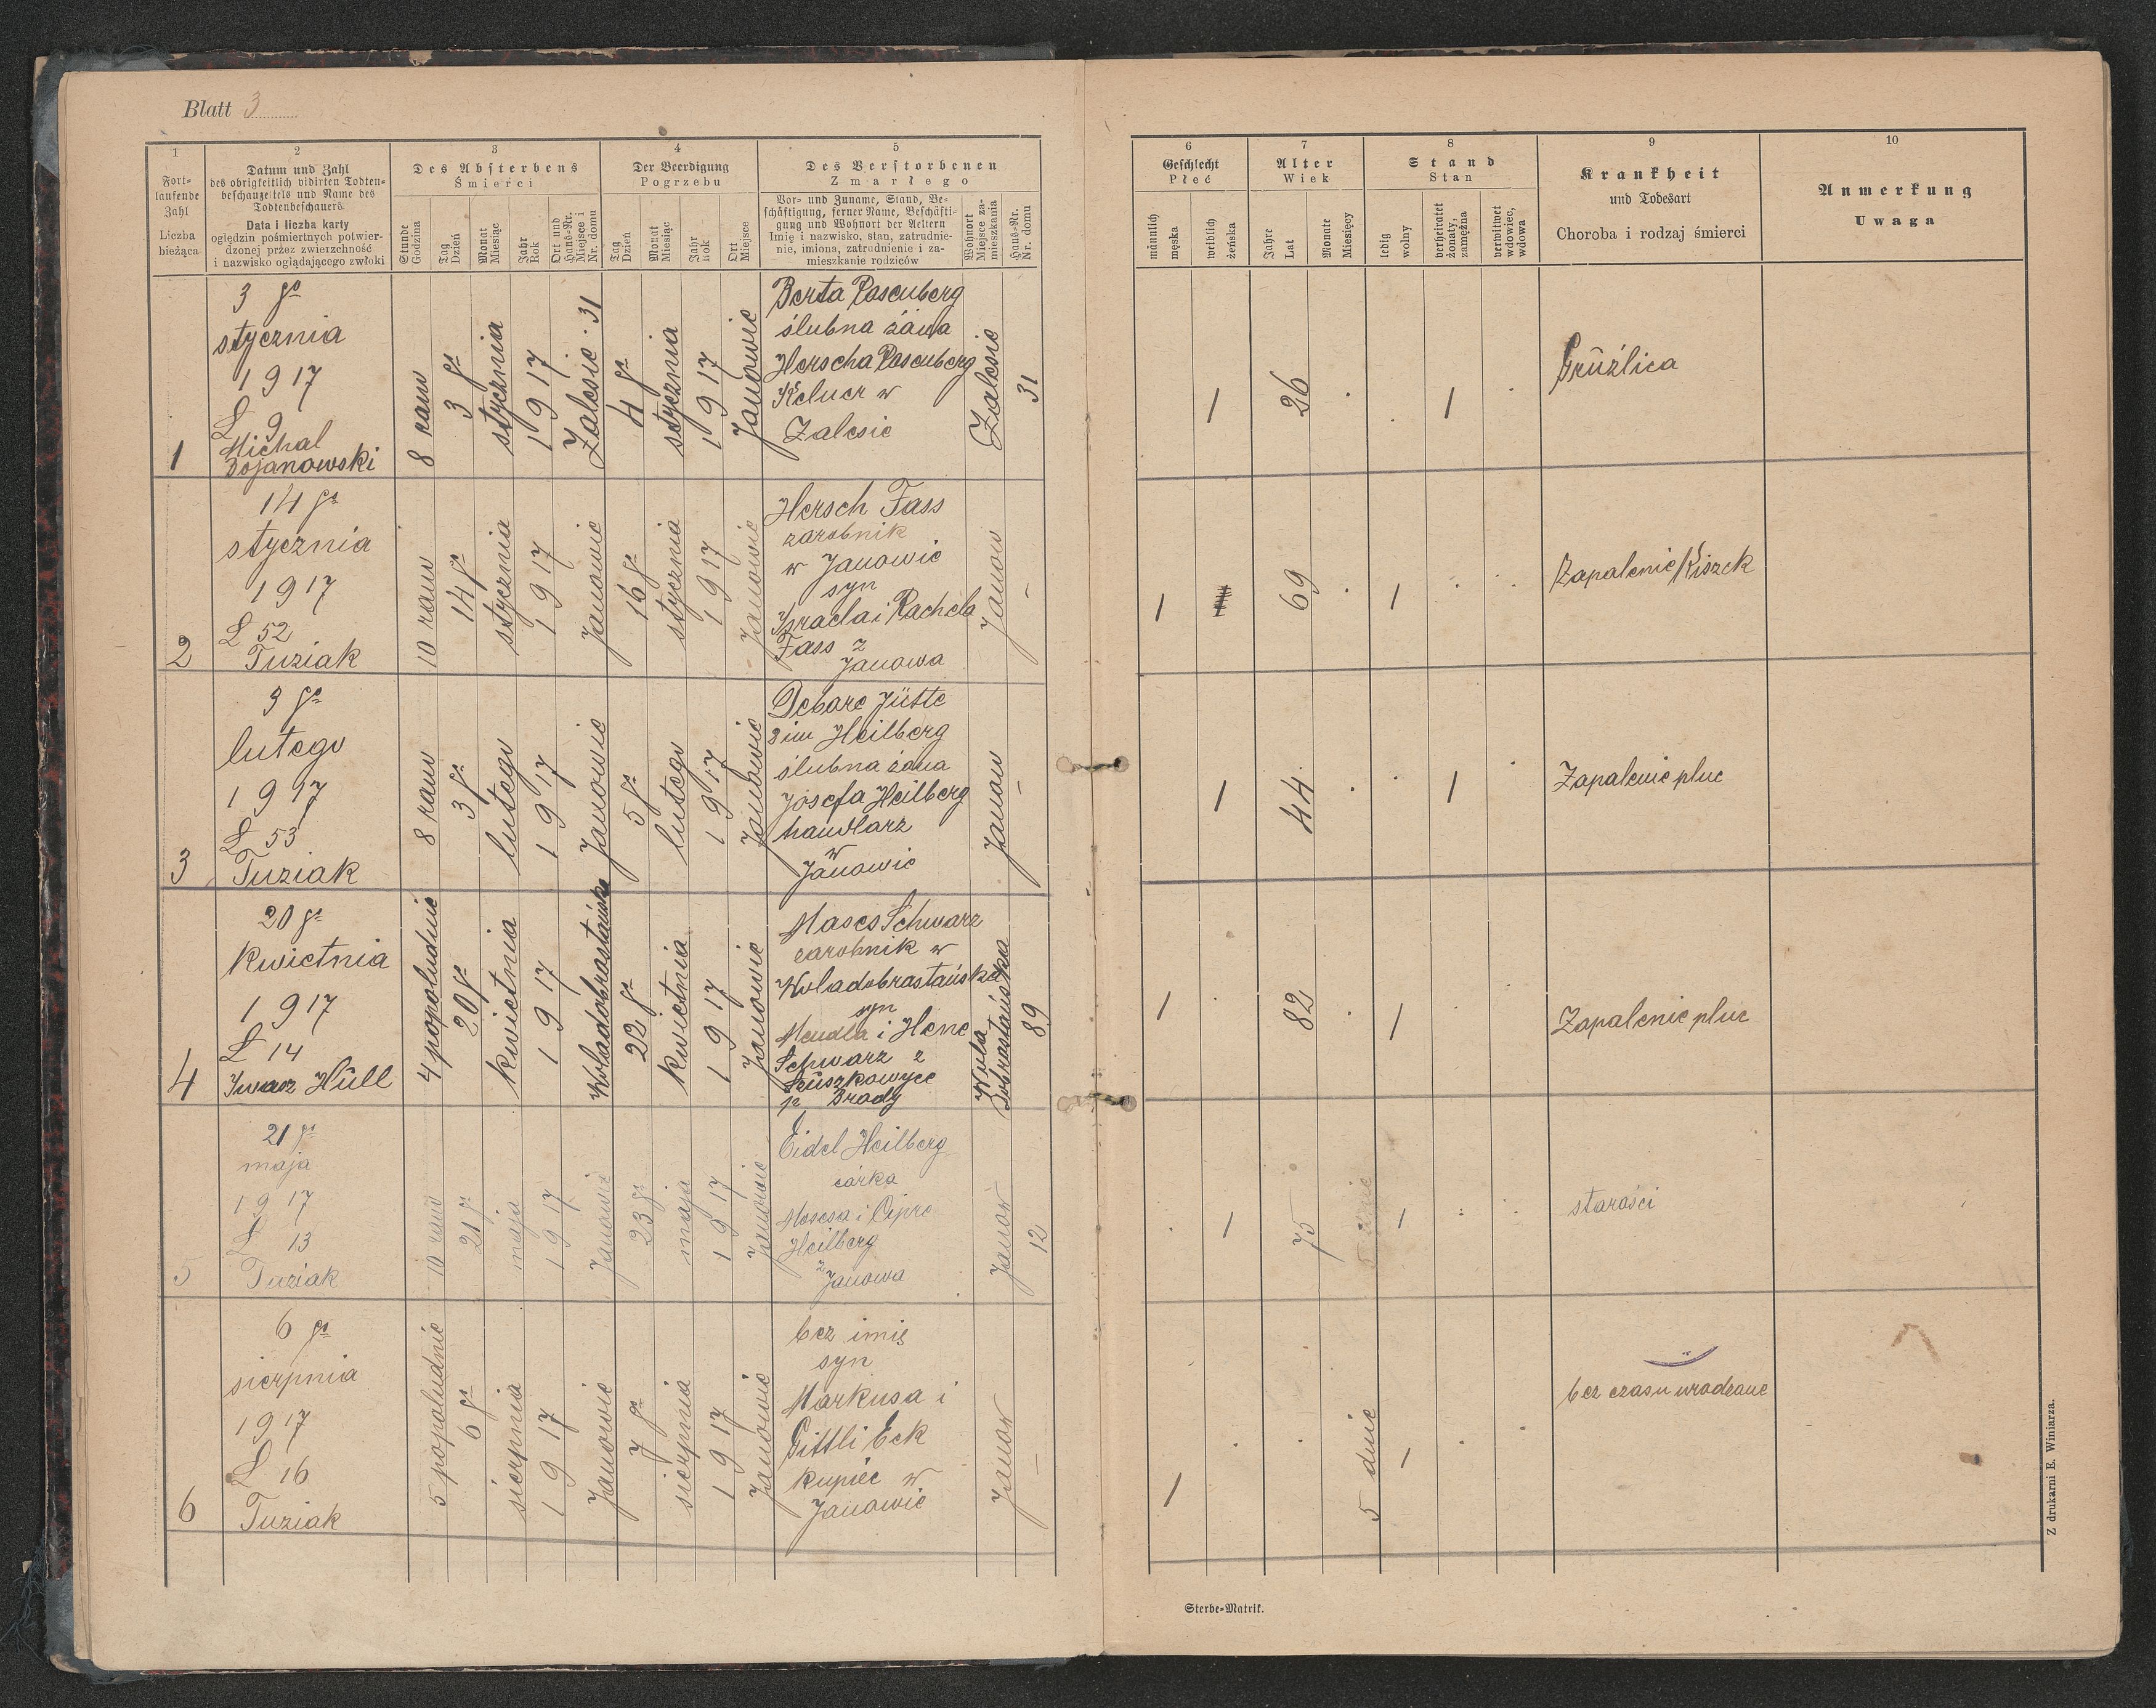 Blatt 3
1
Fort-
laufende
Zahl
Liczba
bieżąca
2
Datum und Zahl
des obrigkeitlich vidirten Todten-
beschauzettels und Name des
Todtenbeschauers
Data i liczba karty
oględzin pośmiertnych potwier-
dzonej przez zwierzchność
i nazwisko oglądającego zwłoki
3
Des Absterbens
Śmierci
Stunde
Godzina
Tag
Dzień
Monat
Miesiąc
Jahr
Rok
Ort und
Haus-Nr.
Miejsce i
Nr. domu
4
Der Beerdigung
Pogrzebu
Tag
Dzień
Monat
Miesiąc
Jahr
Rok
Ort
Miejsce
5
Des Verstorbenen
Zmarłego
Vor- und Zuname, Stand, Be-
schäftigung, ferner Name, Beschäfti-
gung und Wohnort der Aeltern
Imię i nazwisko, stan, zatrudnie-
nie, imiona, zatrudnienie i za-
mieszkanie rodziców
Wohnort
Miejsce za-
mieszkania
Haus-Nr.
Nr. domu
6
Geschlecht
Płeć
männlich
męska
weiblich
żeńska
7
Alter
Wiek
Jahre
Lat
Monate
Miesięcy
8
Stand
Stan
ledig
wolny
verheiratet
żonaty,
zamężna
verwitwet
wdowiec,
wdowa
9
Krankheit
und Todesart
Choroba i rodzaj śmierci
10
Anmerkung
Uwaga
1
3 go
stycznia
1917
L 9
Michal
Bojanowski
8 rano
3 go
stycznia
1917
Zalesie 31
4 go
stycznia
1917
Janowie
Berta Rosenberg
ślubna żona
Herscha Rosenberg
Kelner w
Zalesie
Zalesie
31
1
26
1
Grüźlica
2
14 go
stycznia
1917
L 52
Tuziak
10 rano
14 go
stycznia
1917
Janowie
16 go
stycznia
1917
Janowie
Hersch Fass
zarobnik
w Janowie
syn
Israela i Rachela
Fass z
Janowa
Janow
-
1
69
1
Zapalenie Kiszek
3
3 go
lutego
1917
L 53
Tuziak
8 rano
3 go
lutego
1917
Janowie
5 go
lutego
1917
Janowie
Debore Jütte
2 im Heilberg
ślubna żona
Josefa Heilberg
handlarz
w
Janowie
Janow
-
1
44
1
Zapalenie pluc
4
20 go
Kwietnia
1917
L 14
Iwasz Hüll
4 popoludnie
20 go
Kwietnia
1917
Woladobrostańska
22 go
Kwietnia
1917
Janowie
Moses Schwarz
zarobnik w
Woladobrostańska
syn
Mendla i Hene
Schwarz z
Szüszkowyce
p Brody
Wola
Dobrostańska
89
1
82
1
Zapalenie pluc
5
21 go
maja
1917
L 13
Tuziak
10 rano
21 go
maja
1917
Janowie
23 go
maja
1917
Janowie
Eidel Heilberg
córka
Mosesa i Cipre
Heilberg
z
Janowa
Janow
12
1
75
5 dnie
1
starości
6
6 go
sierpnia
1917
L 16
Tuziak
5 popoludnie
6 go
sierpnia
1917
Janowie
7 go
sierpnia
1917
Janowie
bez imię
syn
Markusa i
Gittli Eck
kupiec w
Janowie
Janow
-
1
5 dnie
1
bez czasu urodzone
Sterbe-Matrik.
Z drukarni E. Winiarza.